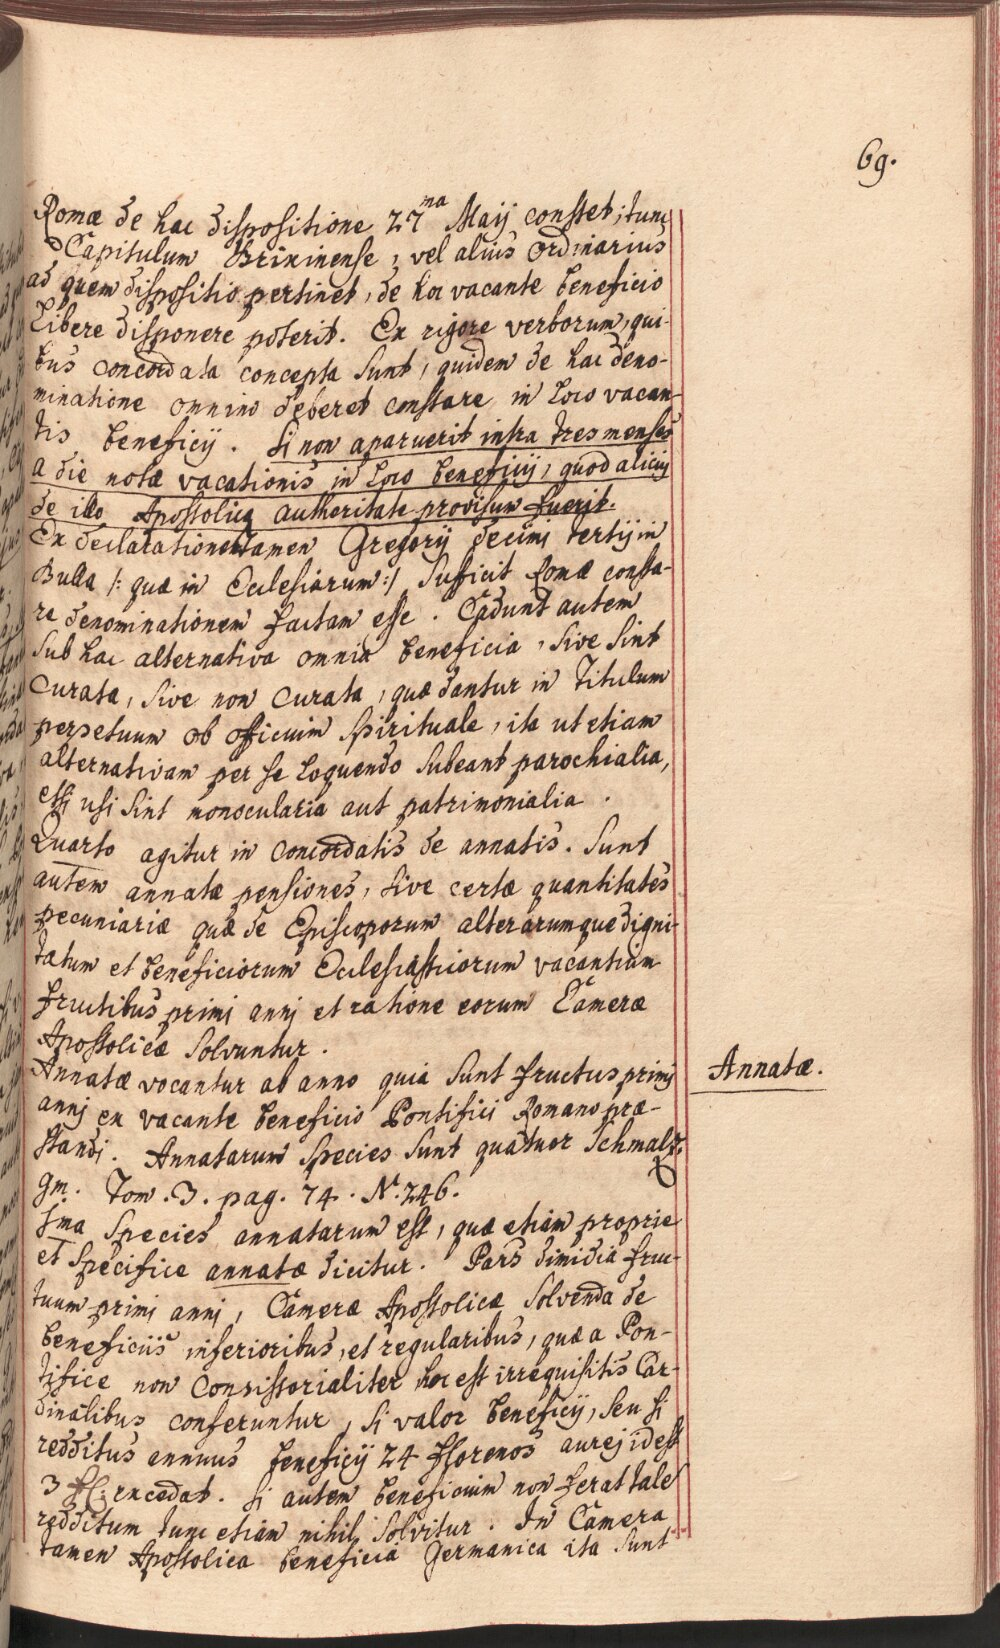 69.
Romæ de hac dispositione 27ma Maij constet; tunc
Capitulum Brixinense, vel alius ordinarius
ad quem dispositio pertinet, de hoc vacante beneficio
Libere disponere poterit. Ex rigore verborum, qui-
bus concordata concepta sunt, quidem de hac deno-
minatione omnino deberet constare in Loco vacan-
tis beneficij. Si non aparuerit infra tres menses
a die notæ vacationis in Loco beneficij, quod alicuj
de illo Apostolica autheritate provisum fuerit.
Ex declaratione tamen Gregorij decimi tertij in
Bulla /: quæ in Ecclesiarum :/ sufficit Romæ consta-
re denominationem factam esse. Cadunt autem
sub hac alternativa omnia beneficia, sive sint
Curata, sive non curata, quæ dantur in Titulum
perpetuum ob officium spirituale, ita ut etiam
alternativam per se loquendo subeant parochialia,
etsi usi sint monocularia aut patrimonialia.
Quarto agitur in Concordatis de annatis. Sunt
autem annatæ pensiones, sive certæ quantitates
pecuniariæ quæ de Episcoporum alterarumque digni-
tatum et beneficiorum Ecclesiasticorum vacantium
fructibus primi annj et ratione eorum Cameræ
Apostolicæ solvuntur.
Annatæ vocantur ab anno quia sunt fructus primj
annj ex vacante beneficio Pontifici Romano præ-
standi. Annatarum species sunt quatuor Schmalz.
Annatæ.
gr. Tom. 3. pag. 74. N. 246.
1ma species annatarum est, quæ etiam proprie
et specifice annatæ dicitur. Pars dimidia fruc-
tuum primi annj, Cameræ Apostolicæ solvenda de
beneficiis inferioribus, et regularibus, quæ a Pon-
tifice non Consistorialiter hoc est irrequisitis Car-
dinalibus conferuntur, si valor beneficij, seu si
redditus annuus beneficij 24 florenos aurej id est
3 fl: excedat. Si autem beneficium non ferat tale
redditum tunc etiam nihil solvitur. In Camera
tamen Apostolica beneficia Germanica ita sunt